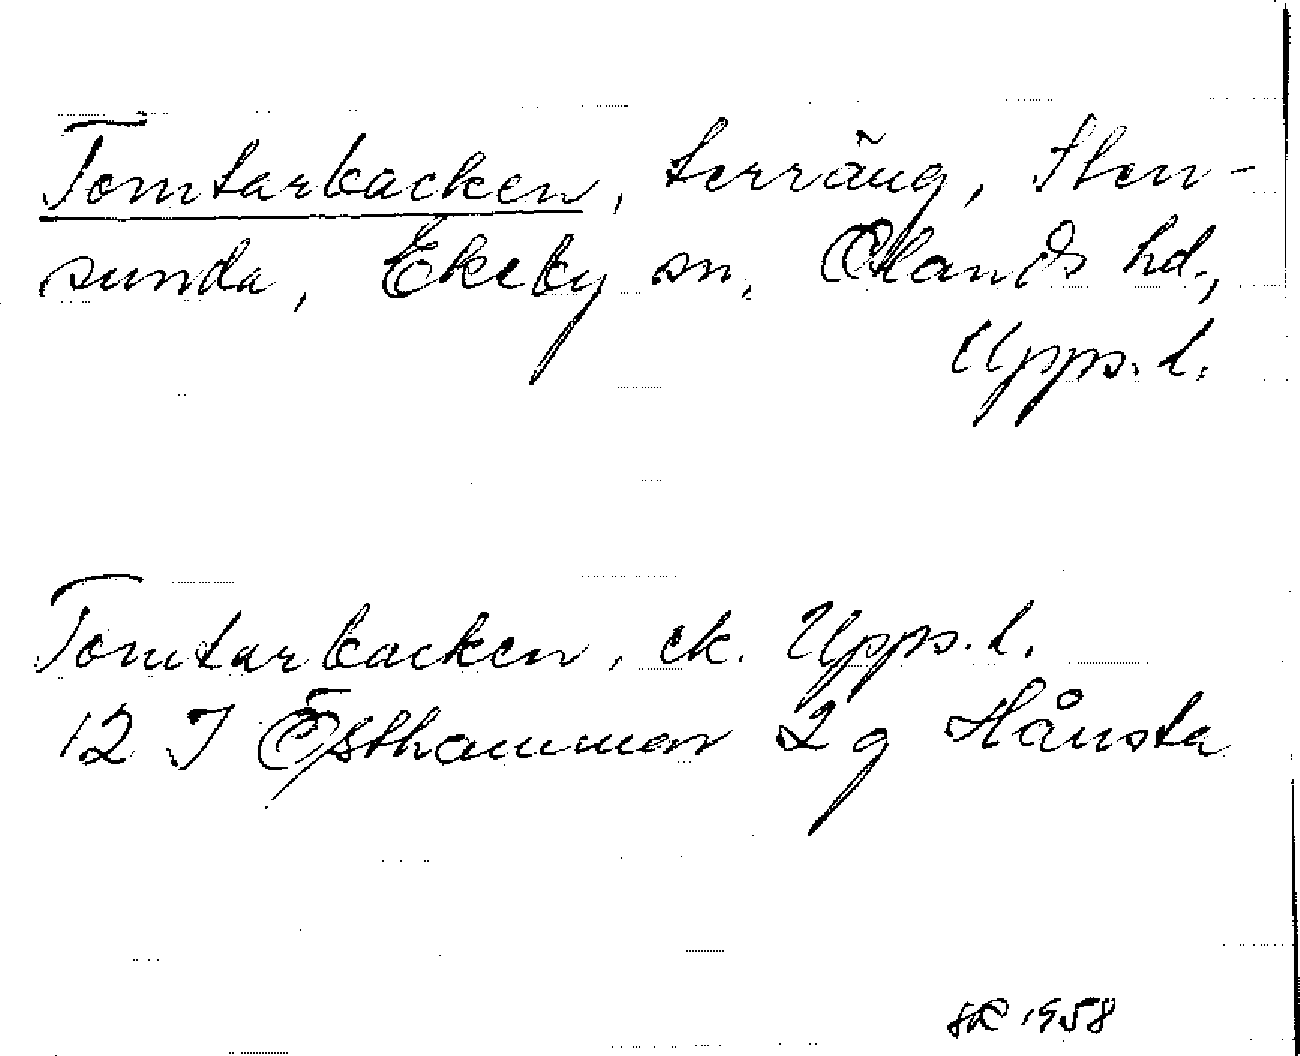 Tomtarbacken, terräng, Sten-
sunda, Ekeby sn, Olands hd.,
Upps. l.
Tomtarbacken, ek. Upps. l.
12 I Östhammar 2 g Hånsta
1958